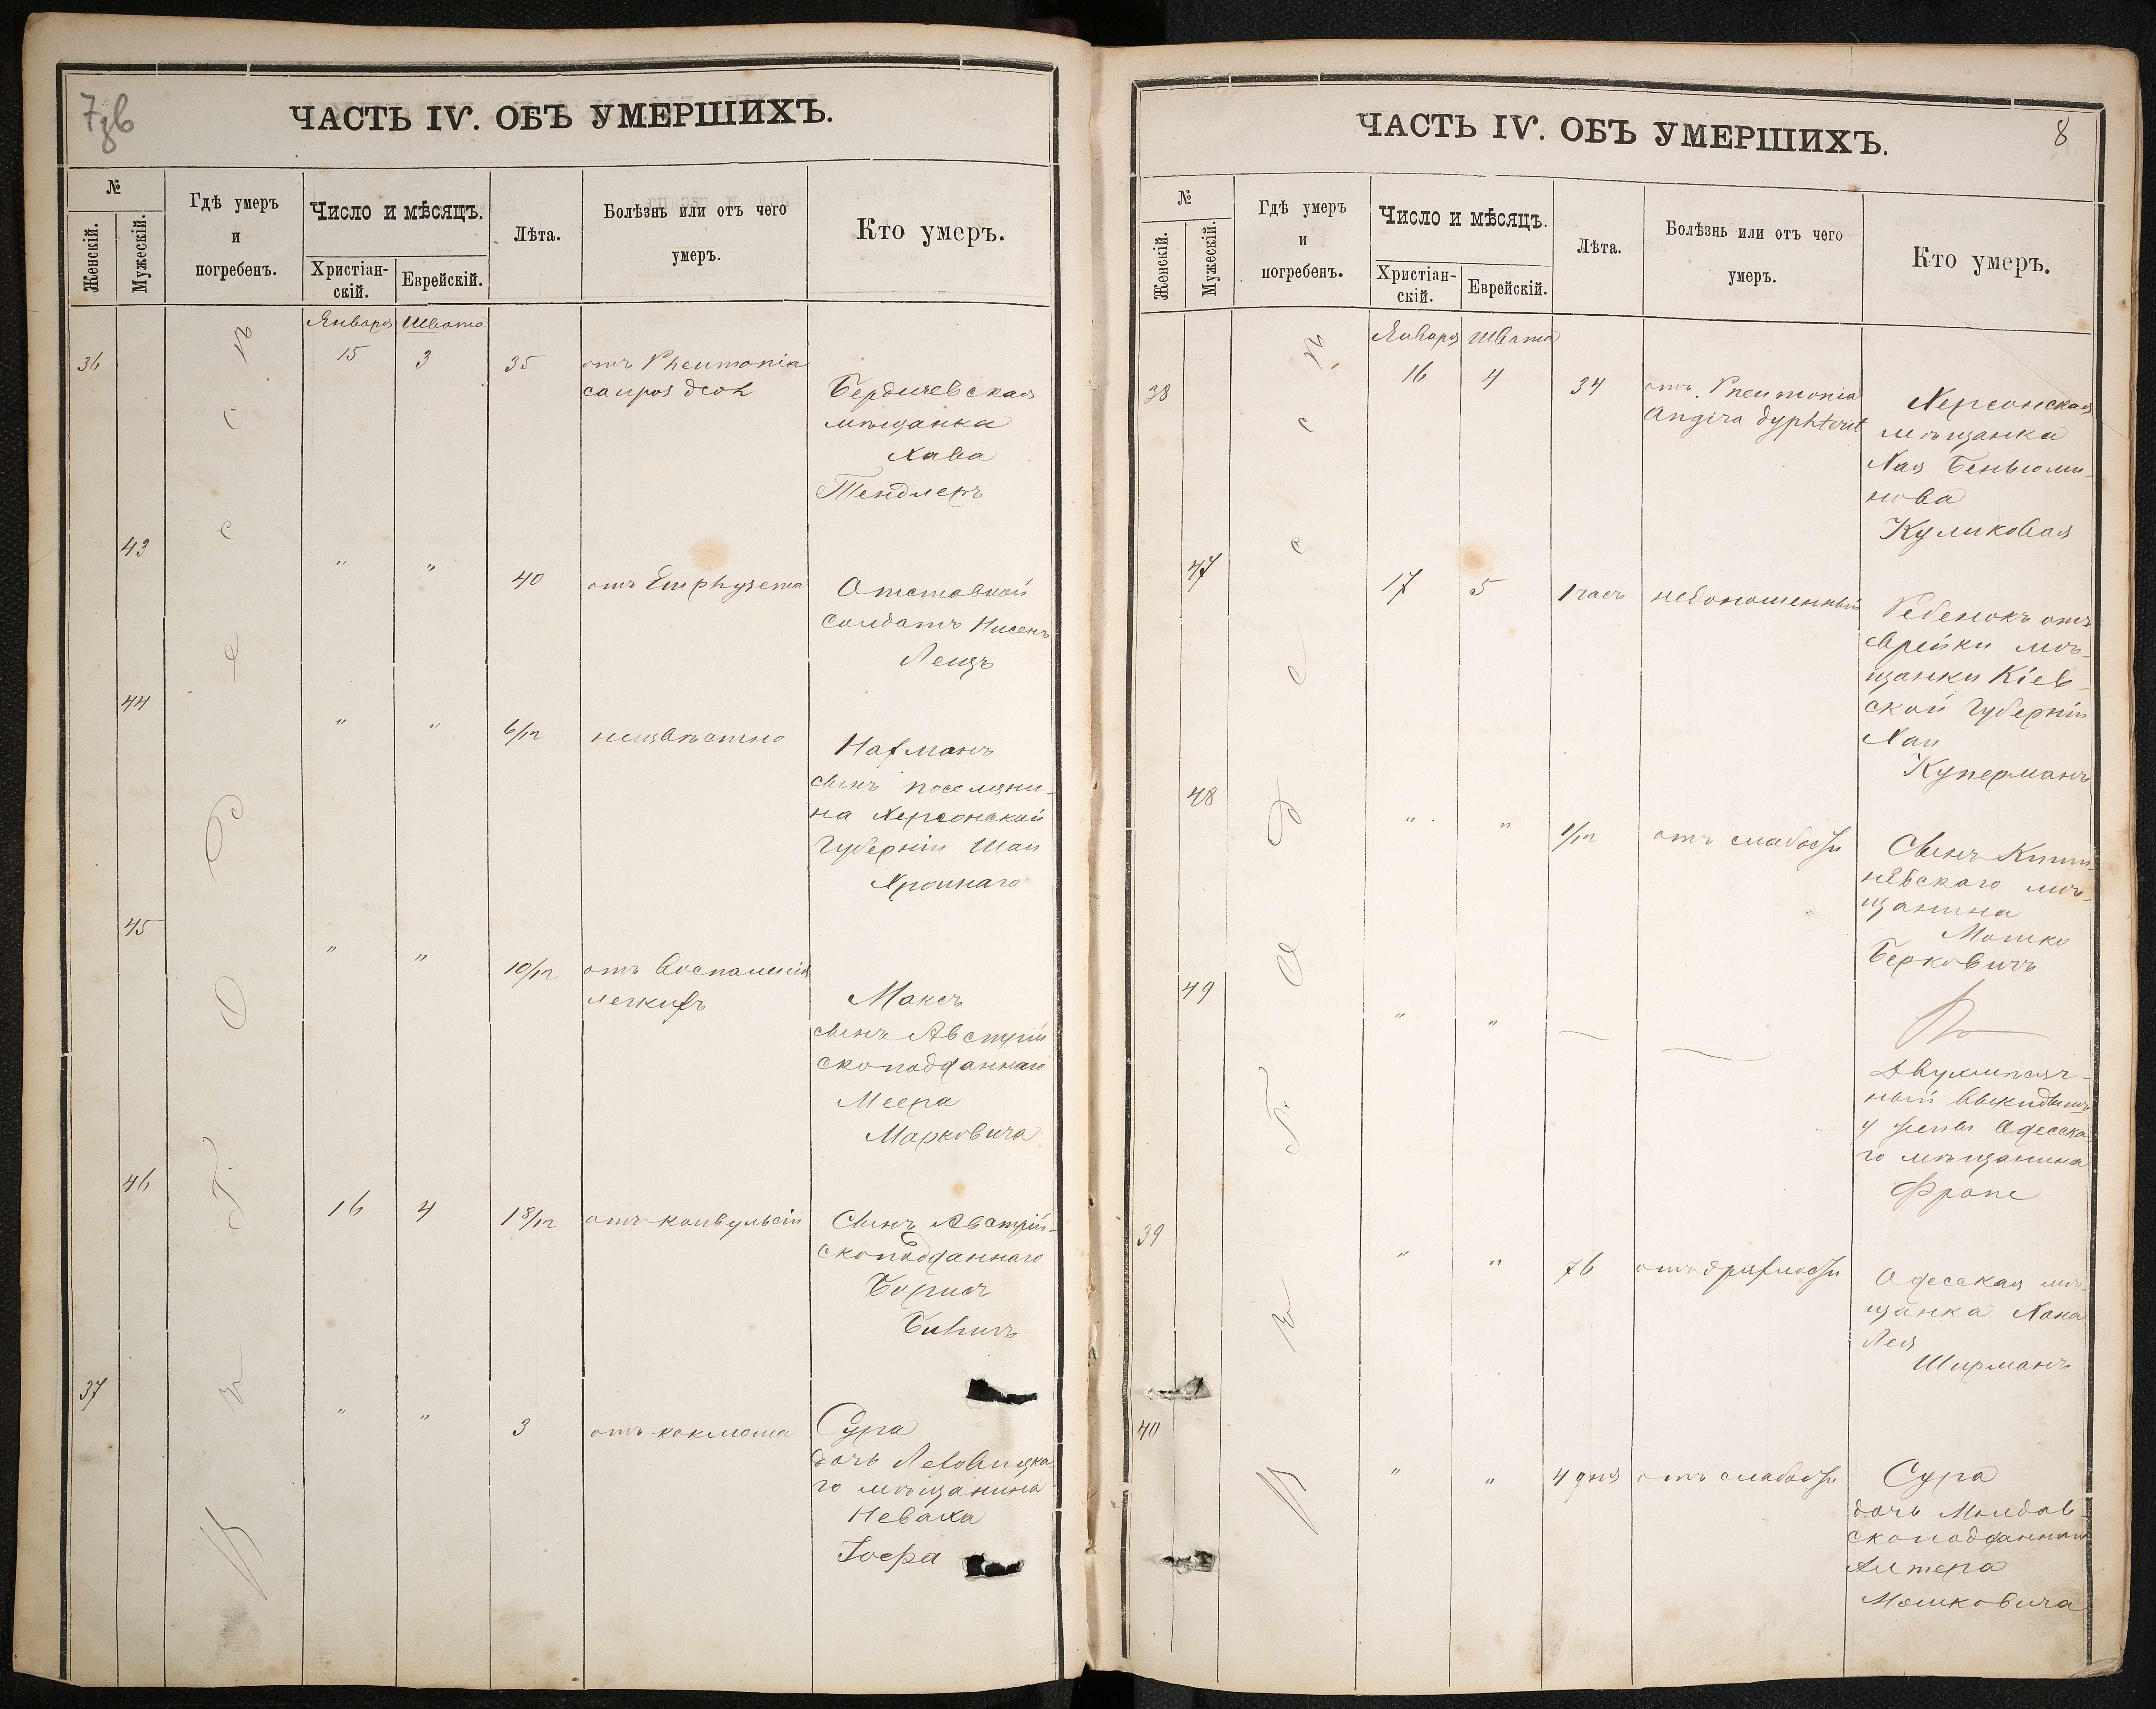 7зв
ЧАСТЬ IV. ОБЪ УМЕРШИХЪ.
№
Женскій.
Мужескій.
Гдѣ умеръ
и
погребенъ.
Число и мѣсяцъ.
Христіан-
скій.
Еврейскій.
Лѣта.
Болѣзнь или отъ чего
умеръ.
Кто умеръ.
Въ г. Одессѣ
Января Швата
36 15 3 35 отъ Pneumonia
Бердичевская
мѣщанка
Хава
Тендлеръ
43 " " 40 отъ Emphysema
Отставной
солдатъ Нисенъ
Лещъ
44 " " 6/12 неизвѣстно
Нахманъ
сынъ поселяни-
на Херсонской
Губерніи Шаи
45 " " 10/12 отъ воспаленія
легкихъ
Максъ
сынъ Австрій
скоподданнаго
Меера
Марковича
46 16 4 1 8/12 отъ конвульсіи
Сынъ Австрій-
скоподданнаго
Борисъ
37 " " 3 отъ коклюша
Сура
дочь
го мѣщанина
Неваха
Іоффа
ЧАСТЬ IV. ОБЪ УМЕРШИХЪ.
8
№
Женскій.
Мужескій.
Гдѣ умеръ
и
погребенъ.
Число и мѣсяцъ.
Христіан-
скій.
Еврейскій.
Лѣта.
Болѣзнь или отъ чего
умеръ.
Кто умеръ.
Въ г. Одессѣ
Января Швата
38 16 4 34 отъ Pneumonia
Angina dyphterit
Херсонская
мѣщанка
Хая Беньюми-
нова
Куликовая
47 17 5 1 часъ недоношенный
Ребенокъ отъ
еврейки мѣ-
щанки Кіев-
ской Губерніи
Хаи
Куперманъ
48 " " 1/12 отъ слабости
Сынъ Киши
невскаго мѣ-
щанина
Мошко
Берковичъ
49 " " — —
Двухмѣсяч-
ный выкидышъ
у жены Одесска-
го мѣщанина
Фрапе
39 " " 76 отъ дряхлости
Одесская мѣ-
щанка Хана
Лея
Ширманъ
40 " " 4 дня отъ слабости
Сура
дочь Молдав-
скоподданнаго
Алтера
Мошковича